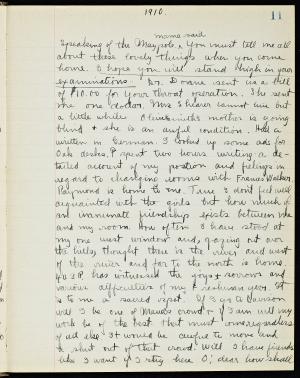 1910.
11
mama said
Speaking of the Maypole, You must tell me all
about these lovely things when you come
home. I hope you will stand high in your
examinations. Dr. Doane sent us a bill
of $10.00 for your throat operation. She sent
me one dollar. Mrs Shearer cannot live but
a little while. Olive Smith's mother is going
blind & she is an awful condition. Had a
written in German. I looked up some ads for
Oak desks. I spent two hours writing a de-
tailed account of my position and feelings in
regard to changing rooms with Frances
Raymond is home to me. True I don't feel well
acquainted with the girls but how much of
an intimate friendship exists between me
and my room. How often I have stood at
my one west window and gazing out over
the hills, thought there is the river and west
of the river and far to the north is home.
403 R has witnessed the joys & sorrows and
various difficulties of my freshman year. It
is to me a sacred spot. If I go to Davison
will I be one of Maude's crowd & if I am will my
work be of the best that must come regardless
of all else. It would be awful to move and
be shut out of that crowd. Will I have friends
like I want if I stay here. O, dear how shall